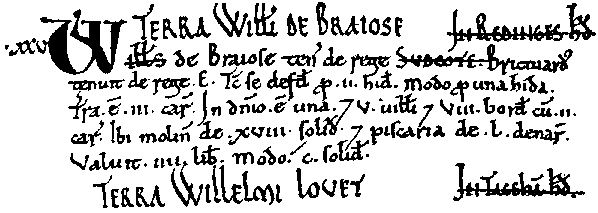 .xxv. TERRA Willi DE BRAIOSE In REDINGES Hd
Wills de Braiose ten' de rege SUDCOTE. Brictuard
tenuit de rege. E. Tc se defd p. ii. hid. modo p una hida.
Tra. ē. iii. car. In dnio. ē una. 7 v. uilli 7 viii. bord cū. ii.
car. Ibi molin de .xviii. solid. 7 piscaria de. l. denar.
Valuit. iiii. lib. Modo. c. solid.
TERRA WILLELMI LOVET